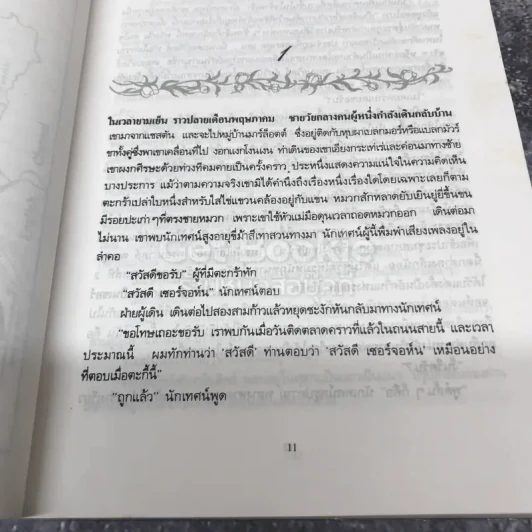 1
ในเวลายามเย็น ราวปลายเดือนพฤษภาคม ชายวัยกลางคนผู้หนึ่งกำลังเดินกลับบ้าน
เขามาจากแชสตัน และจะไปหมู่บ้านมาร์ล็อตต์ ซึ่งอยู่ติดกับหุบผาเบลกมอร์หรือแบลกมัวร์
ขาทั้งคู่ซึ่งพาเขาเคลื่อนที่ไป งอนแงกโงนเงน ทำเดินของเขาเอียงกระเท่เร่และค่อนมาทางซ้าย
เขาผงกศีรษะด้วยท่วงทีคมคายเป็นครั้งคราว ประหนึ่งแสดงความแน่ใจในความคิดเห็น
บางประการ แม้ว่าตามความจริงเขามิได้คำนึงถึงเรื่องหนึ่งเรื่องใดโดยเฉพาะเลยก็ตาม
ตะกร้าเปล่าใบหนึ่งสำหรับใส่ไข่แขวนคล้องอยู่กับแขน หมวกสักหลาดยับเยินยู่ยี่ขึ้นขน
มีรอยปะเก่า ๆ ที่ตรงชายหมวก เพราะเขาใช้หัวแม่มือดุนเวลาถอดหมวกออก เดินต่อมา
ไม่นาน เขาพบนักเทศน์สูงอายุขี่ม้าสีเทาสวนทางมา นักเทศน์ผู้นี้พึมพำเสียงเพลงอยู่ใน
ลำคอ
“สวัสดีขอรับ” ผู้ที่มีตะกร้าทัก
“สวัสดี เซอร์จอห์น” นักเทศน์ตอบ
ฝ่ายผู้เดิน เดินต่อไปสองสามก้าวแล้วหยุดชะงักหันกลับมาทางนักเทศน์
“ขอโทษเถอะขอรับ เราพบกันเมื่อวันติดตลาดคราวที่แล้วในถนนสายนี้ และเวลา
ประมาณนี้ ผมทักท่านว่า ‘สวัสดี’ ท่านตอบว่า ‘สวัสดี เซอร์จอห์น’ เหมือนอย่าง
ที่ตอบเมื่อตะกี้นี้”
“ถูกแล้ว” นักเทศน์พูด
11